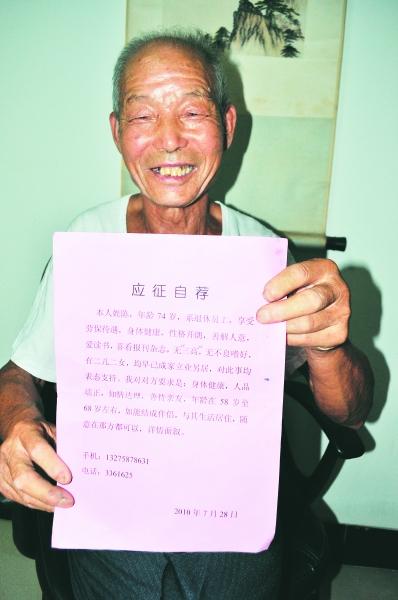 应征自荐
本人姓陈，年龄74岁，系退休员工，享受
劳保待遇，身体健康，性格开朗，善解人意，
爱读书，喜看报刊杂志，无“三高”，无不良嗜好，
有二儿二女，均早已成家立业另居，对此事均
表态支持。我对对方要求是：身体健康，人品
端正，知情达理，善待亲友，年龄在58岁至
68岁左右，如能结成伴侣，与其生活居住，随
意在那方都可以，详情面叙。
手机：13275878631
电话：3361625
2010年7月28日